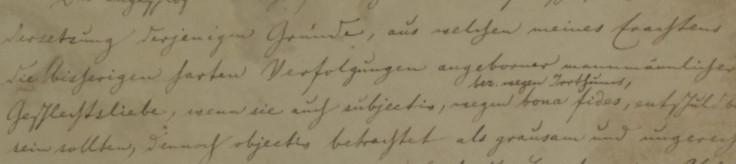 dersetzung derjenigen Gründe, aus welchen meines Erachtens
die bisherigen harten Verfolgungen angeborner mannmännlicher
bez. wegen Irrthums,
Geschlechtsliebe, wenn sie auch subjectiv, wegen bona fides, entschuldb
sein sollten, dennoch objectiv betrachtet als grausam und ungerech